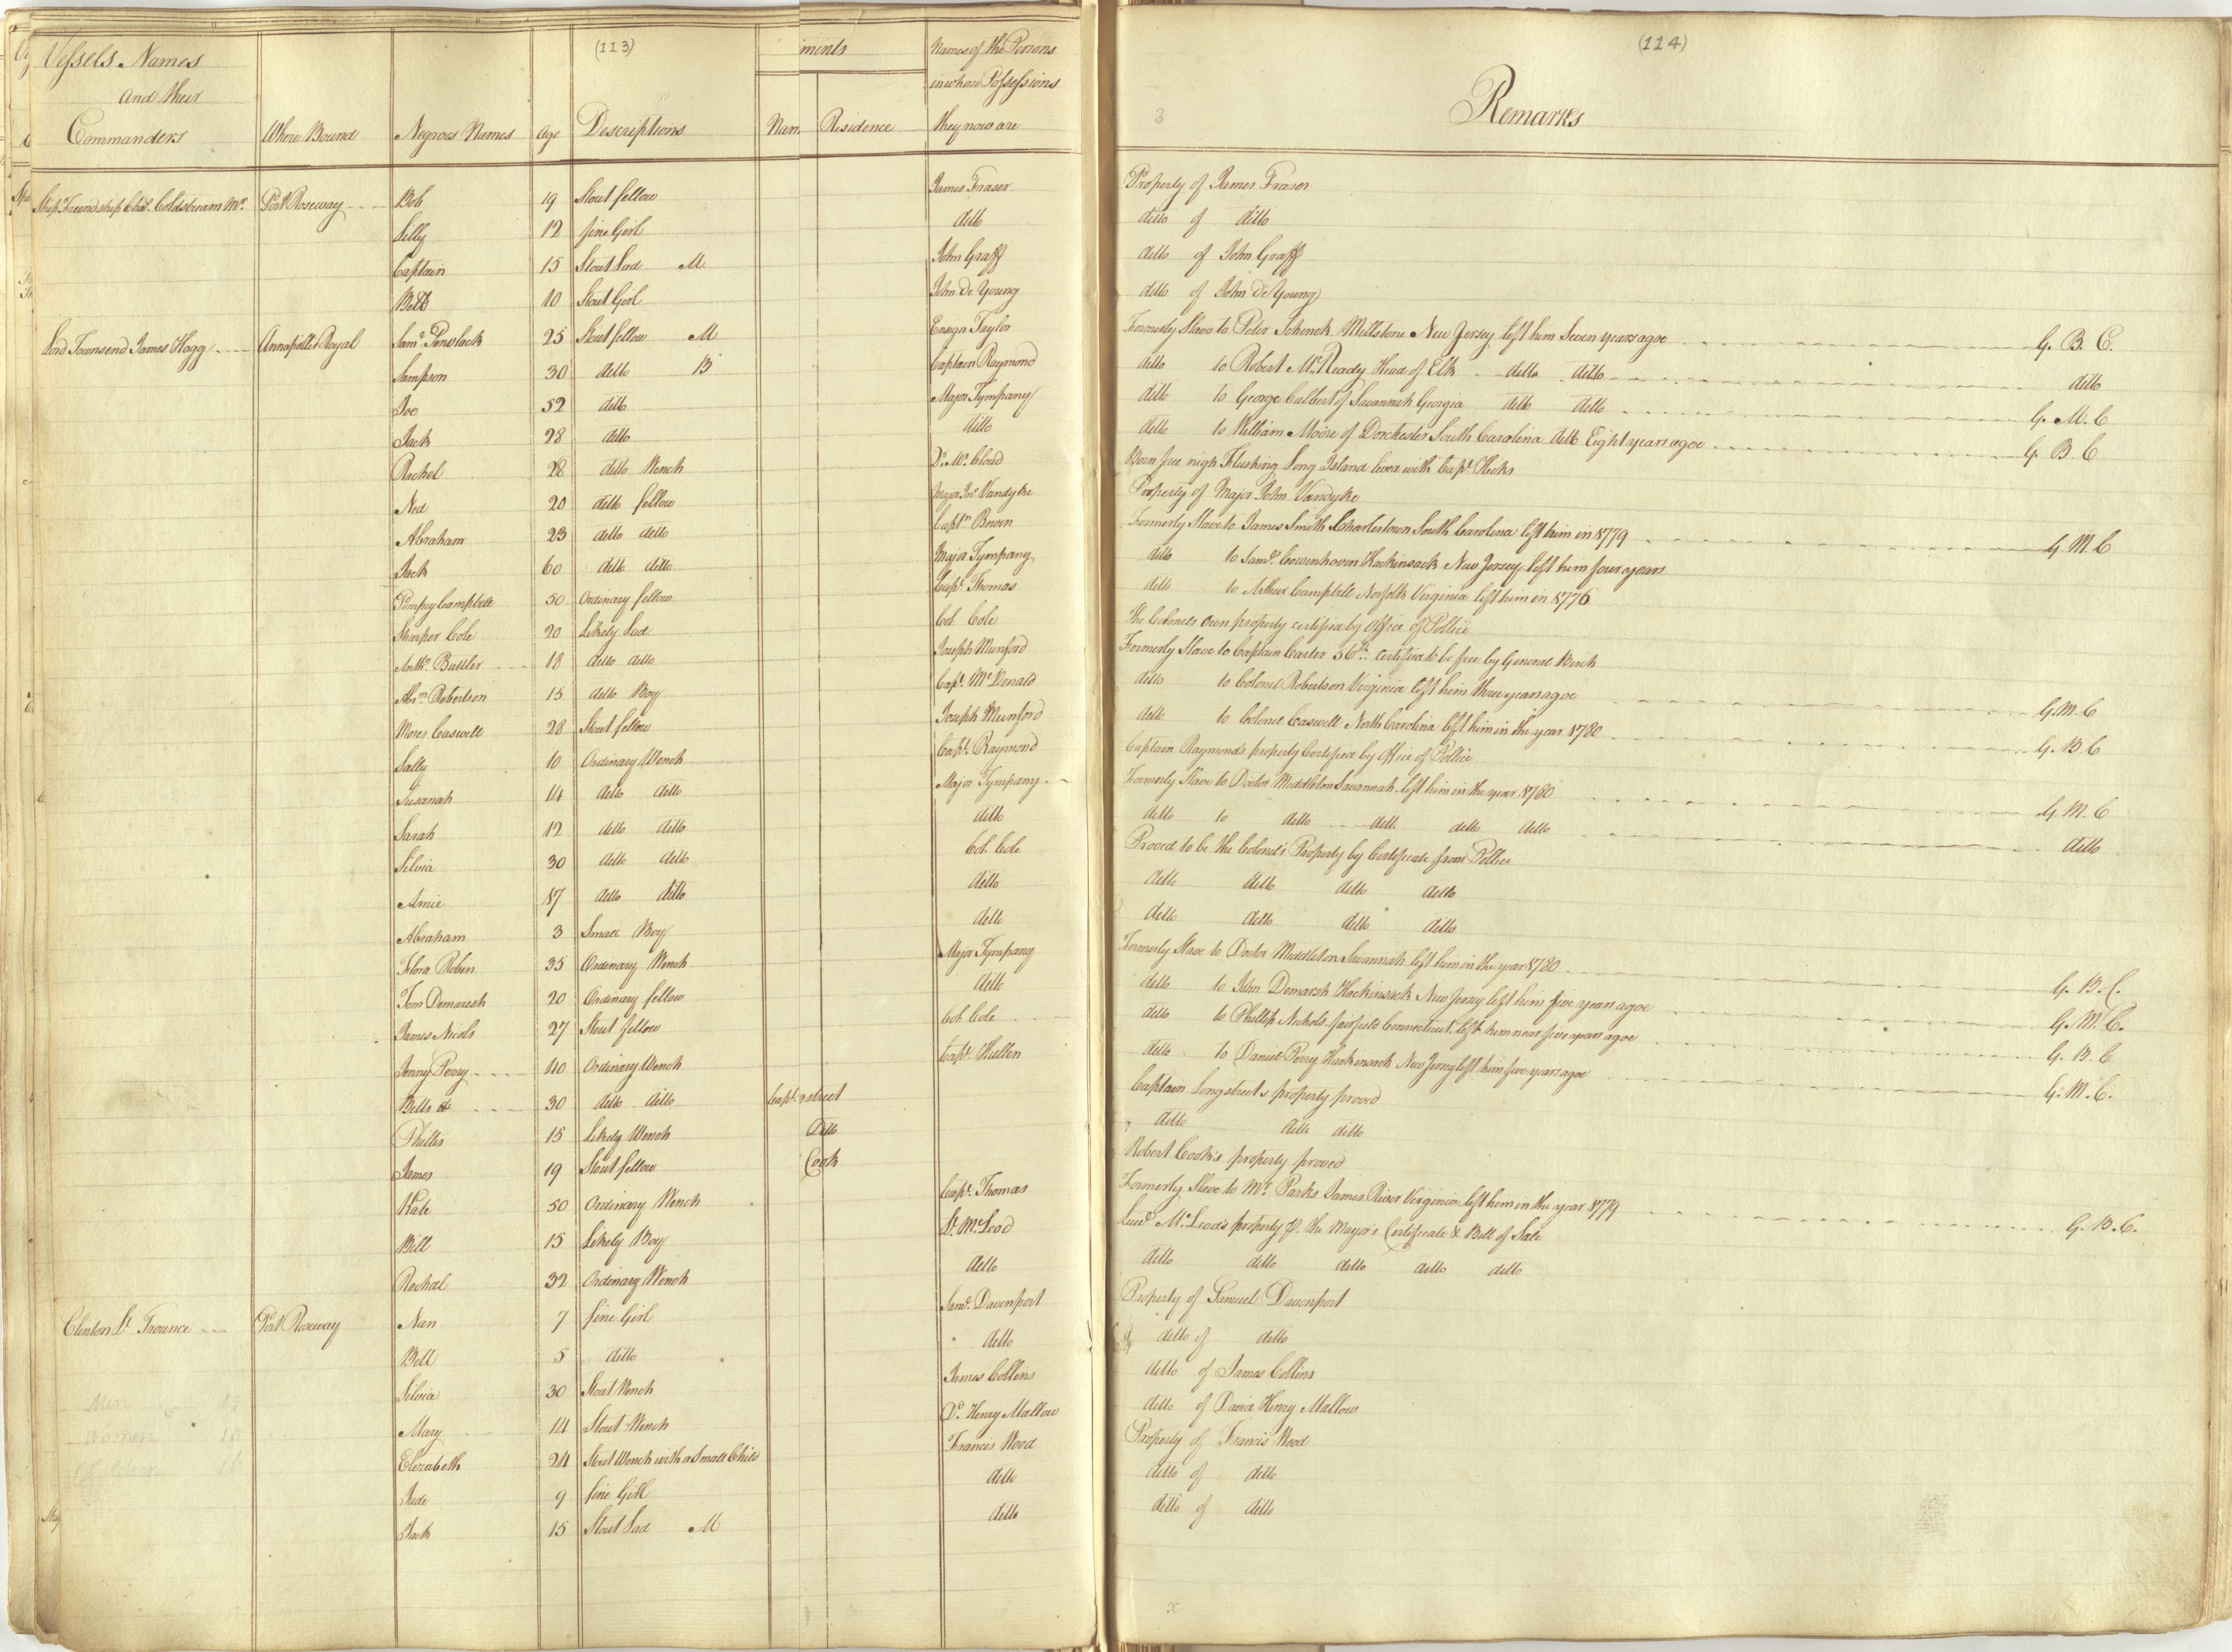 (113)
Vessels Names
and their
Commanders
Where Bound
Negroes Names
Age
Descriptions
ments
Nam
Residence
Names of the Persons
in whose Possessions
they now are
(114)
Remarks
Ship Friendship Chas. Coldstream Mr. Port Roseway Bob 19 Stout fellow James Fraser Property of James Fraser
Lilly 12 fine Girl ditto ditto of ditto
Captain 15 Stout Lad M. John Graff ditto of John Graff
Bett 10 Stout Girl John De Young ditto of John De Young
Lord Townsend James Hogg Annapolis Royal Saml. 25 Stout fellow M Ensign Taylor Formerly Slave to Peter Schenck Millstone New Jersey left him Seven years agoe G. B. C.
Sampson 30 ditto B Captain Raymond ditto to Robert McReady Head of Elk ditto ditto ditto
Joe 52 ditto Major Tympany ditto to George Culbert of Savannah Georgia ditto ditto G. M. C
Jack 28 ditto ditto ditto to William Moore of Dorchester South Carolina ditto Eight years agoe G. B C
Rachel 28 ditto Wench Dr. Mc. Cloud Born free nigh Flushing Long Island lived with Capt. Hicks
Ned 20 ditto fellow Major Jno. Vandyke Property of Major John Vandyke
Abraham 23 ditto ditto Captn. Bowen Formerly Slave to James Smith Charlestown South Carolina left him in 1779 G. M. C
Jack 60 ditto ditto Major Tympany ditto to Saml. Cowenhoven Hackinsack New Jersey left him four years
Pompey Campbell 50 Ordinary fellow Capt. Thomas ditto to Arthur Campbell Norfolk Virginia left him in 1776
Sharper Cole 20 Likely Lad Col. Cole The Colonels own property certified by Office of Police
Anthy. Buttler 18 ditto ditto Joseph Munford Formerly Slave to Captain Carter certified to be free by General Birch
Abrm. Robertson 15 ditto Boy Capt. McDonald ditto to Colonel Robertson Virginia left him three years agoe G. M. C
Moses Caswell 28 Stout fellow Joseph Munford ditto to Colonel Caswell North Carolina left him in the year 1780 G. B C
Sally 10 Ordinary Wench Capt. Raymond Captain Raymonds property Certified by Office of Police
Susanah 14 ditto ditto Major Tympany Formerly Slave to Doctor Middleton Savannah left him in the year 1780 G. M. C
Sarah 12 ditto ditto ditto ditto to ditto ditto ditto ditto ditto
Silvia 30 ditto ditto Col. Cole Proved to be the Colonel's Property by Certificate from Police
Amie 17 ditto ditto ditto ditto ditto ditto ditto
Abraham 3 Small Boy ditto ditto ditto ditto ditto
Flora Roben 35 Ordinary Wench Major Tympany Formerly Slave to Doctor Middleton Savannah left him in the year 1780 G. B. C.
Tom Demaresh 20 Ordinary fellow ditto ditto to John Demarsh Hackinsack New Jersey left him five years agoe G. M. C.
James Nicols 27 Stout fellow Col. Cole ditto to Phillip Nichols fairfield Connecticut left him near five years agoe G. B. C
Jenny Perry 40 Ordinary Wench Capt. Hullen ditto to Daniel Perry Hackinsack New Jersey left him five years agoe G. M. C.
Betts 30 ditto ditto Capt. street Captain Longstreet's property proved
Phillis 15 Likely Wench Ditto ditto ditto ditto
James 19 Stout fellow Cook Robert Cook's property proved
Kate 50 Ordinary Wench Capt. Thomas Formerly Slave to Mr. Parks James River Virginia left him in the year 1779 G. B. C.
Bill 15 Likely Boy Lt. McLeod Lieut. McLeod's property the Mayor's Certificate & Bill of Sale
Rachal 32 Ordinary Wench ditto ditto ditto ditto ditto ditto
Clinton Lt. Trounce Port Roseway Nan 7 fine Girl Saml. Davenport Property of Samuel Davenport
Bell 5 ditto ditto ditto of ditto
Silvia 30 Stout Wench James Collins ditto of James Collins
Mary 14 Stout Wench Dd. Henry Mallow ditto of David Henry Mallow
Elizabeth 24 Stout Wench with a Small Child Francis Wood Property of Francis Wood
Jude 9 fine Girl ditto ditto of ditto
Jack 15 Stout Lad M ditto ditto of ditto
Men
Women